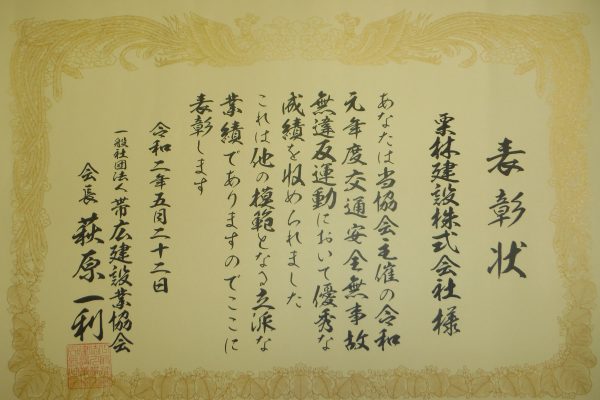 表彰状
栗林建設株式会社様
あなたは当協会主催の令和
元年度交通安全無事故
無違反運動において優秀な
成績を収められました
これは他の模範となる立派な
業績でありますのでここに
表彰します
令和二年五月二十二日
一般社団法人帯広建設業協会
会長 萩原一利